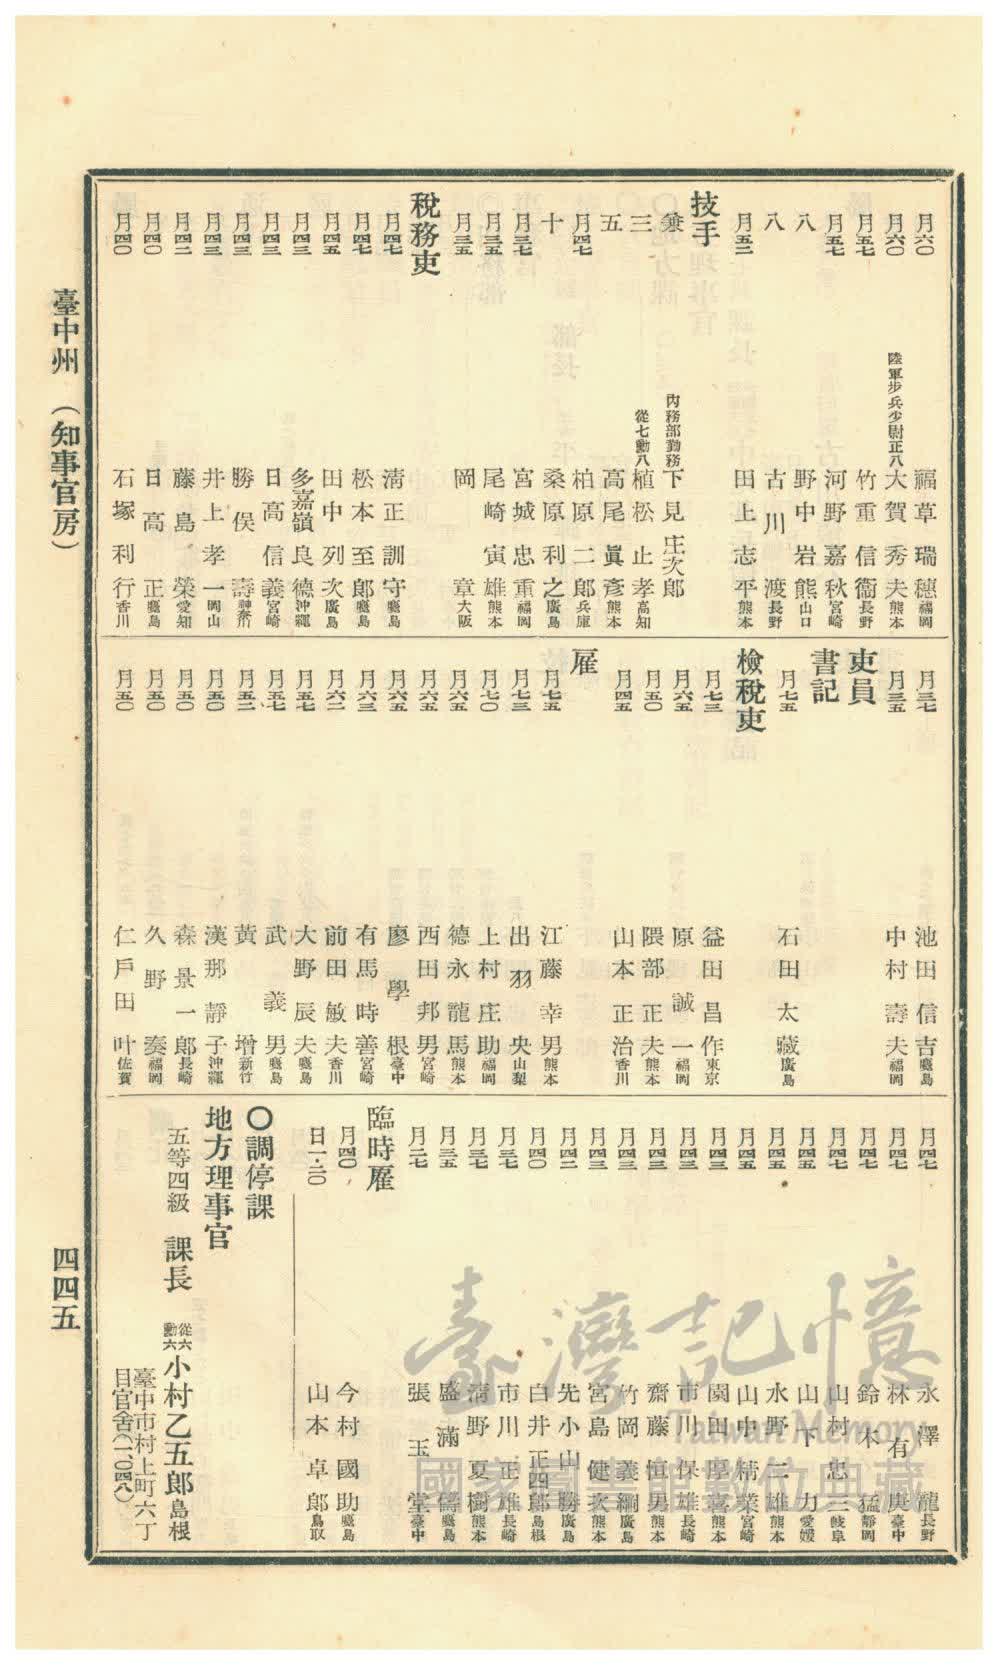 臺中州 (知事官房)
四四五
月六〇 福草瑞穗 福岡
月六〇 陸軍步兵少尉正八 大賀秀夫 熊本
月五七 竹重信衞 長野
月五七 河野嘉秋 宮崎
八 野中岩熊 山口
八 古川渡 長野
月五二 田上志平 熊本
技手
兼 內務部勤務 下見庄次郎
三 從七勳八 植松止孝 高知
五 高尾眞彥 熊本
月四七 柏原二郎 兵庫
十 桑原利之 廣島
月三七 宮城忠重 福岡
月三五 尾崎寅雄 熊本
月三五 岡章 大阪
稅務吏
月四七 淸正訓守 鹿兒島
月四七 松本至郎 鹿兒島
月四五 田中列次 廣島
月四三 多嘉嶺良德 沖繩
月四三 日高信義 宮崎
月四三 勝俣壽 神奈川
月四三 井上孝一 岡山
月四二 藤島榮 愛知
月四〇 日高正 鹿兒島
月四〇 石塚利行 香川
月三七 池田信吉 鹿兒島
月三五 中村壽夫 福岡
吏員
書記
月七五 石田太藏 廣島
檢稅吏
月七三 益田昌作 東京
月六五 原誠一 福岡
月五〇 隈部正夫 熊本
月四五 山本正治 香川
雇
月七五 江藤幸男 熊本
月七三 出羽央 山梨
月七〇 上村庄助 福岡
月六五 德永龍馬 熊本
月六五 西田邦男 宮崎
月六五 廖學根 臺中
月六三 有馬時善 宮崎
月六二 前田敏夫 香川
月五七 大野辰夫 鹿兒島
月五七 武義男 鹿兒島
月五二 黃增 新竹
月五〇 漢那靜子 沖繩
月五〇 森景一郎 長崎
月五〇 久野奏 福岡
月五〇 仁戶田叶 佐賀
月四七 永澤龍 長野
月四七 林有庚 臺中
月四七 鈴木猛 靜岡
月四七 山村忠三 岐阜
月四五 山下力 愛媛
月四五 水野二雄 熊本
月四五 山中精業 宮崎
月四三 園山厚喜 熊本
月四三 市川保雄 長崎
月四三 齋藤恒男 熊本
月四三 竹岡義綱 廣島
月四三 宮島健次 熊本
月四二 先小山勝 廣島
月四〇 白井正四郎 島根
月三七 市川正雄 長崎
月三七 淸野夏樹 熊本
月三五 盛滿 鹿兒島
月二七 張玉堂 臺中
臨時雇
月四〇 今村國助 鹿兒島
日一・二〇 山本卓郎 鳥取
〇調停課
地方理事官
五等四級 課長 從六勳六 小村乙五郎 島根
臺中市村上町六丁
目官舍(一、〇四八)
臺灣記憶
Taiwan Memory
國家圖書館數位典藏